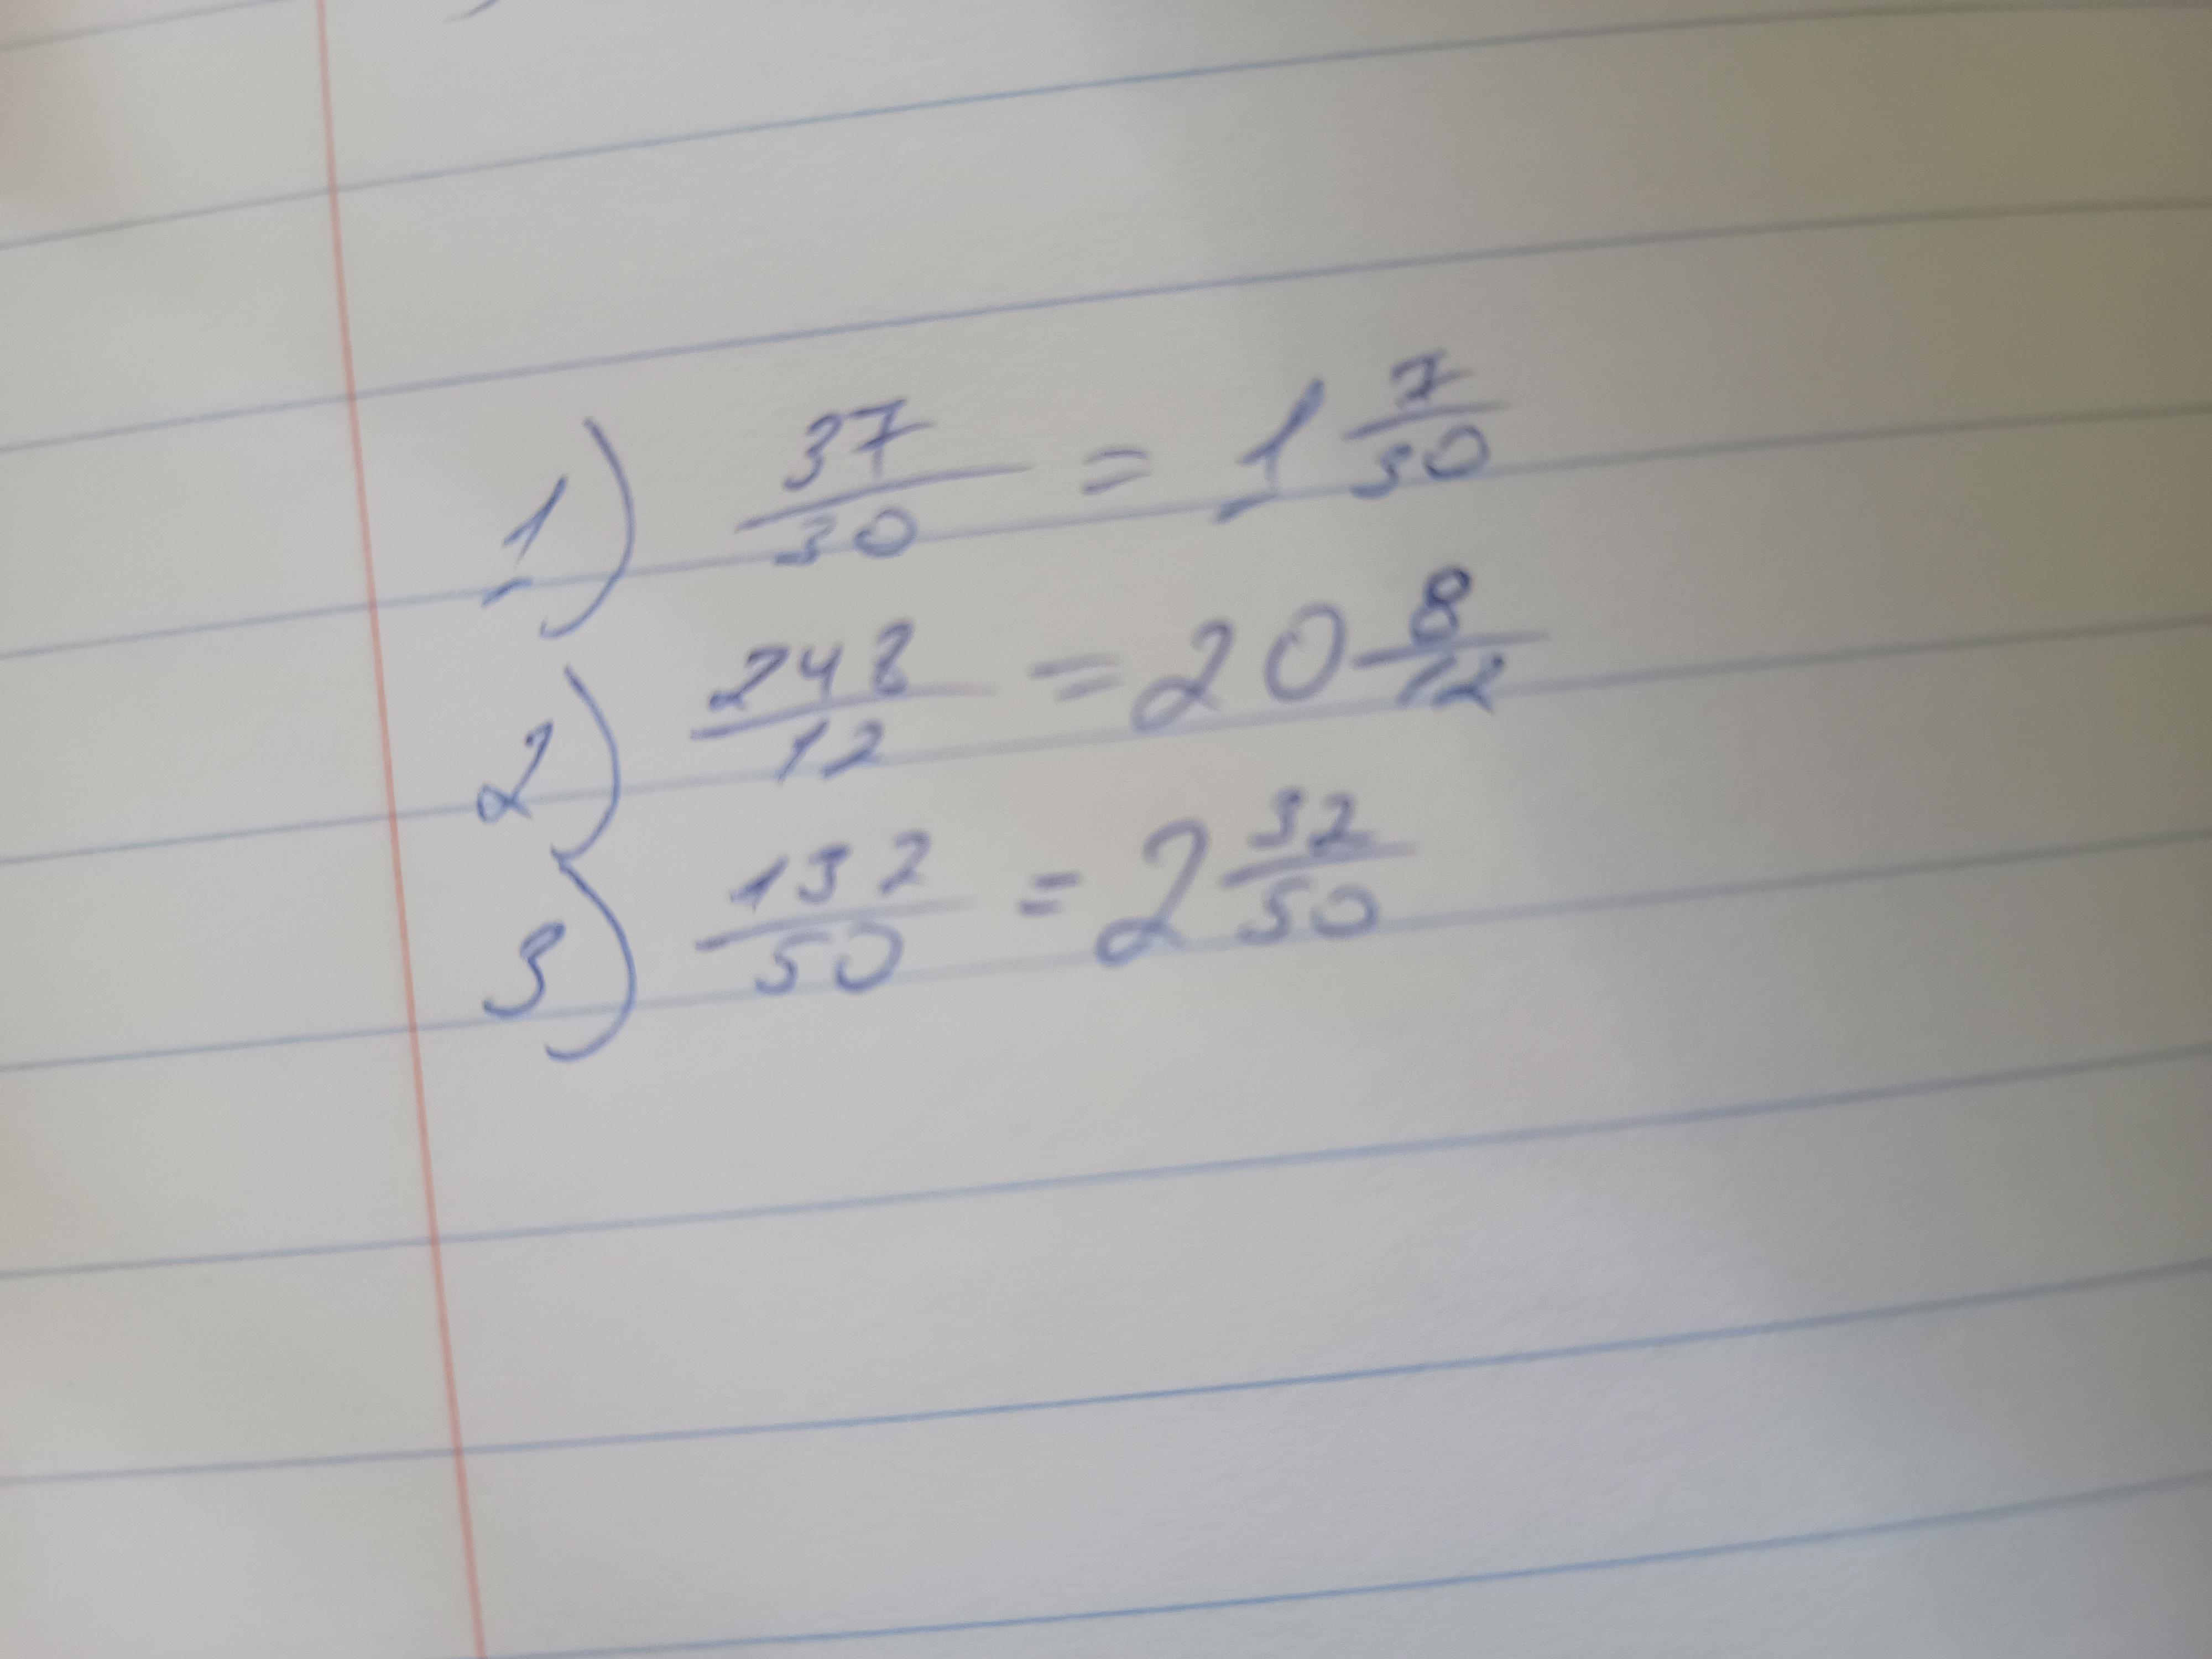 1) 37/30 = 1 7/30
2) 248/12 = 20 8/12
3) 132/50 = 2 32/50